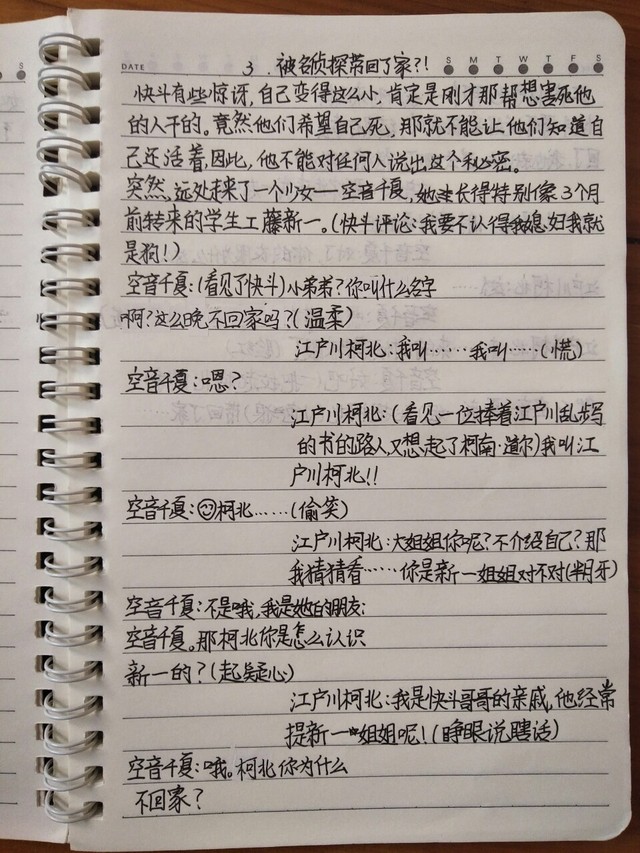 DATE 3.被名侦探带回了家?! S M T W T F S
快斗有些惊讶,自己变得这么小,肯定是刚才那帮想害死他
的人干的。竟然他们希望自己死,那就不能让他们知道自
己还活着,因此,他不能对任何人说出这个秘密。
突然,远处走来了一个少女——空音千夏,她长得特别像3个月
前转来的学生工藤新一。(快斗评论:我要不认得我媳妇我就
是狗!)
空音千夏:(看见了快斗)小弟弟?你叫什么名字
啊?这么晚不回家吗?(温柔)
江户川柯北:我叫……我叫……(慌)
空音千夏:嗯?
江户川柯北:(看见一位捧着江户川乱步写
的书的路人,又想起了柯南·道尔)我叫江
户川柯北!!
空音千夏:柯北……(偷笑)
江户川柯北:大姐姐你呢?不介绍自己?那
我猜猜看……你是新一姐姐对不对(半月牙)
空音千夏:不是哦,我是她的朋友:
空音千夏。那柯北你是怎么认识
新一的?(起疑心)
江户川柯北:我是快斗哥哥的亲戚,他经常
提新一姐姐呢!(睁眼说瞎话)
空音千夏:哦。柯北你为什么
不回家?